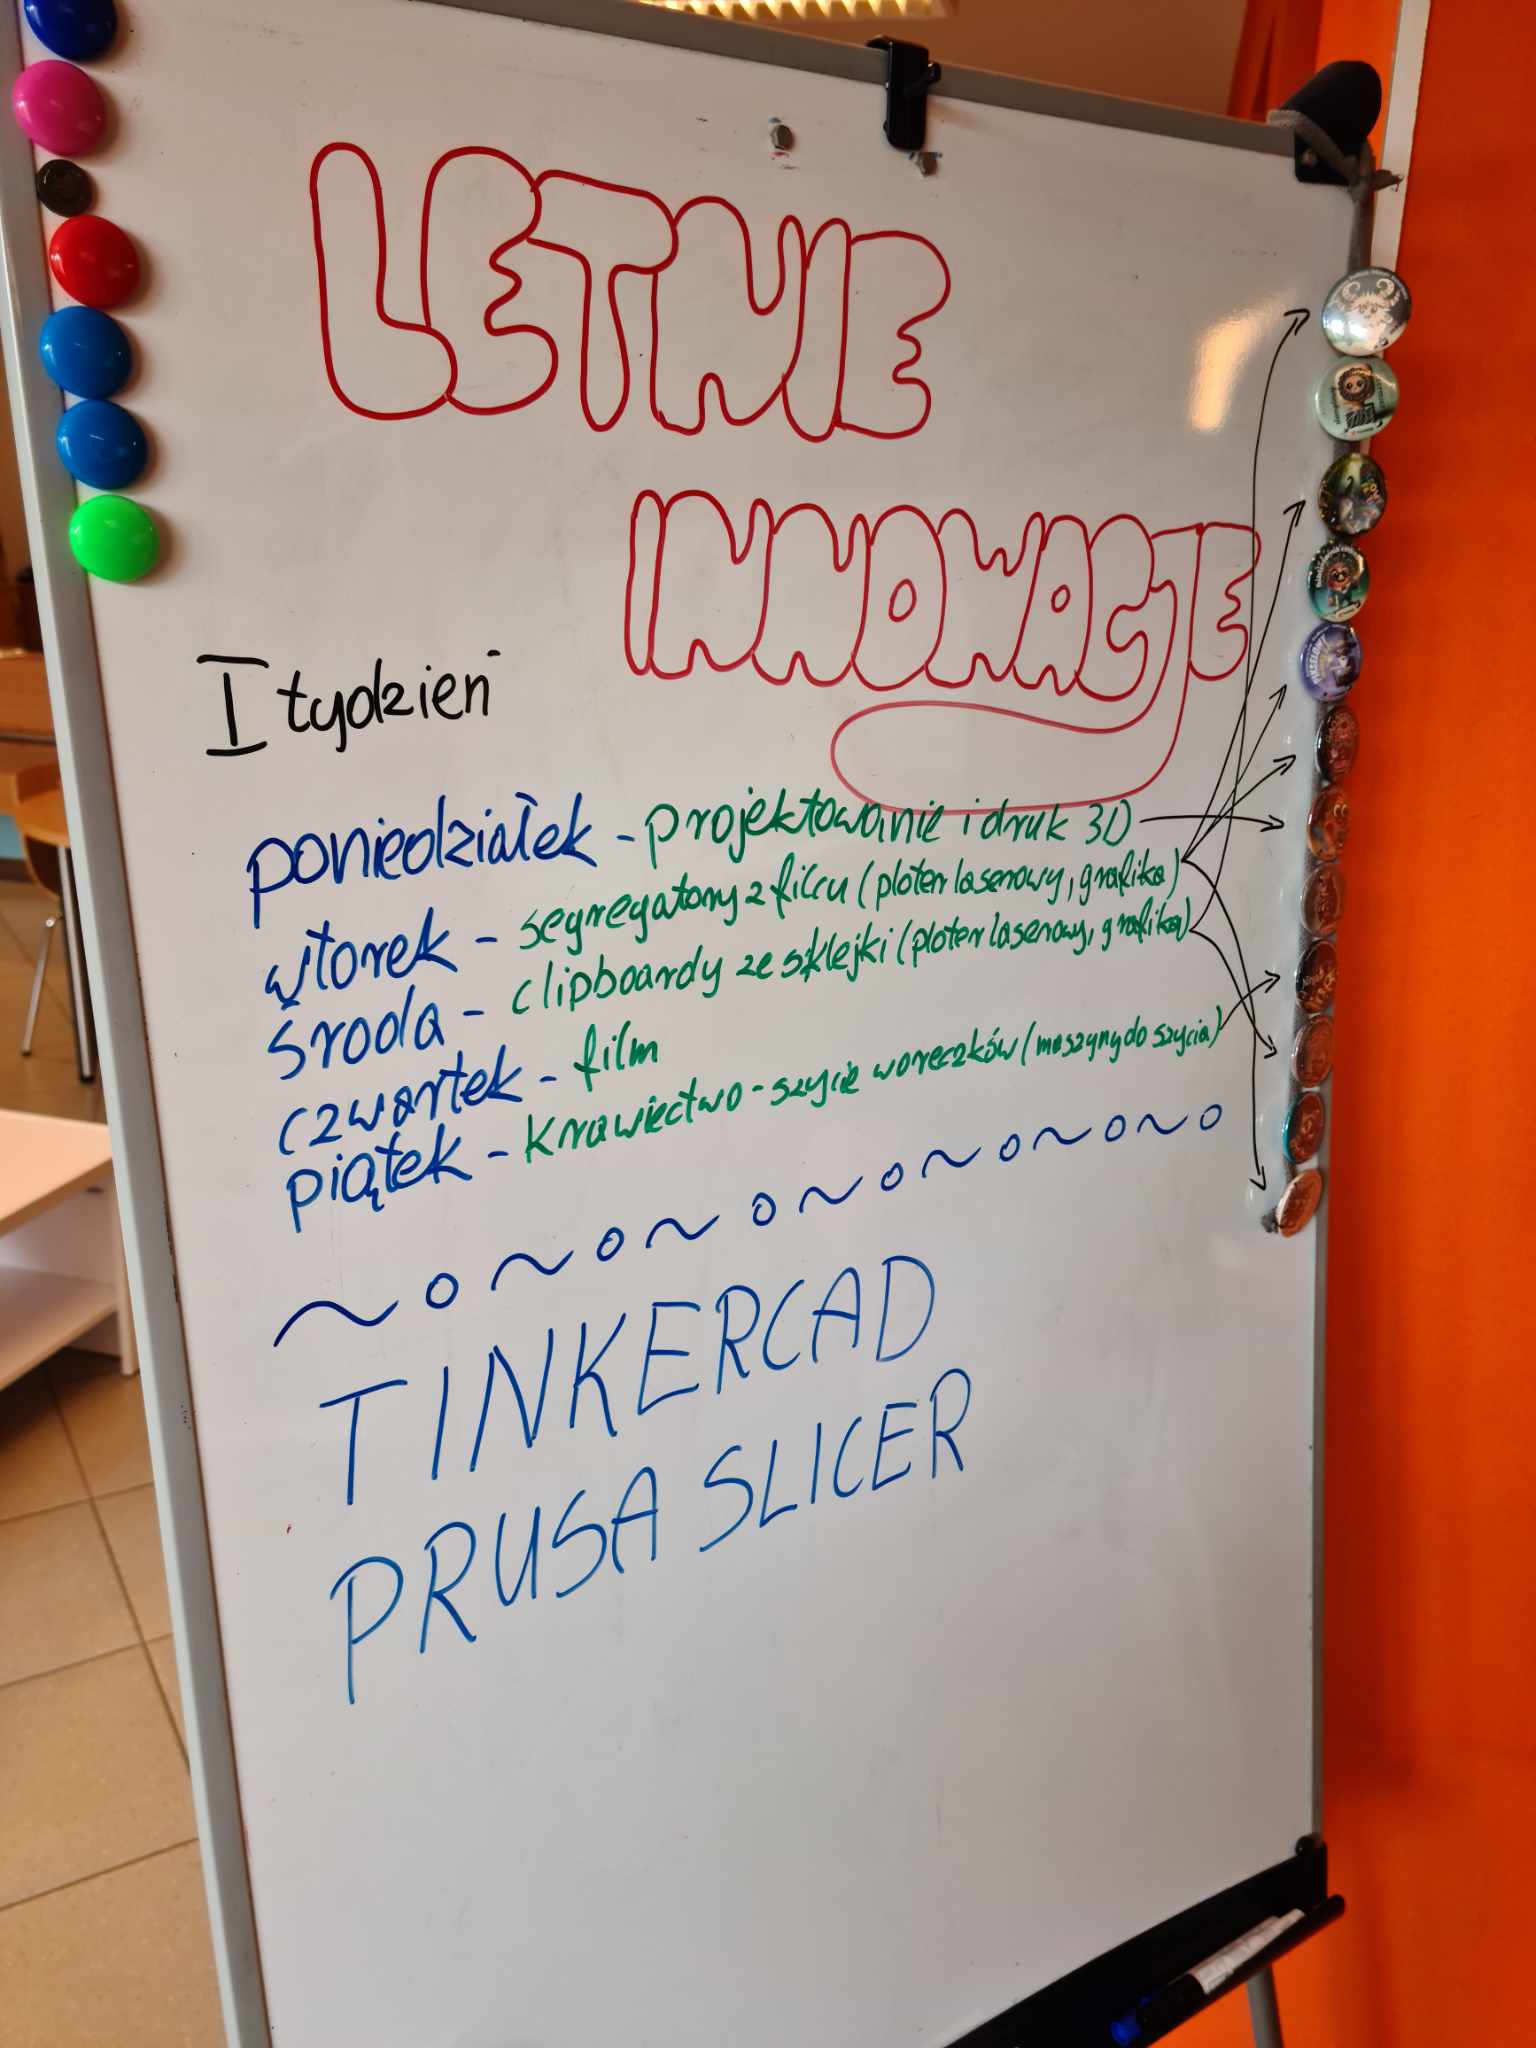 LETNIE
INNOWACJE
I tydzień
poniedziałek - projektowanie i druk 3D
wtorek - segregatory z filcu (ploter laserowy, grafika)
środa - clipboardy ze sklejki (ploter laserowy, grafika)
czwartek - film
piątek - krawiectwo - szycie woreczków (maszyny do szycia)
TINKERCAD
PRUSA SLICER